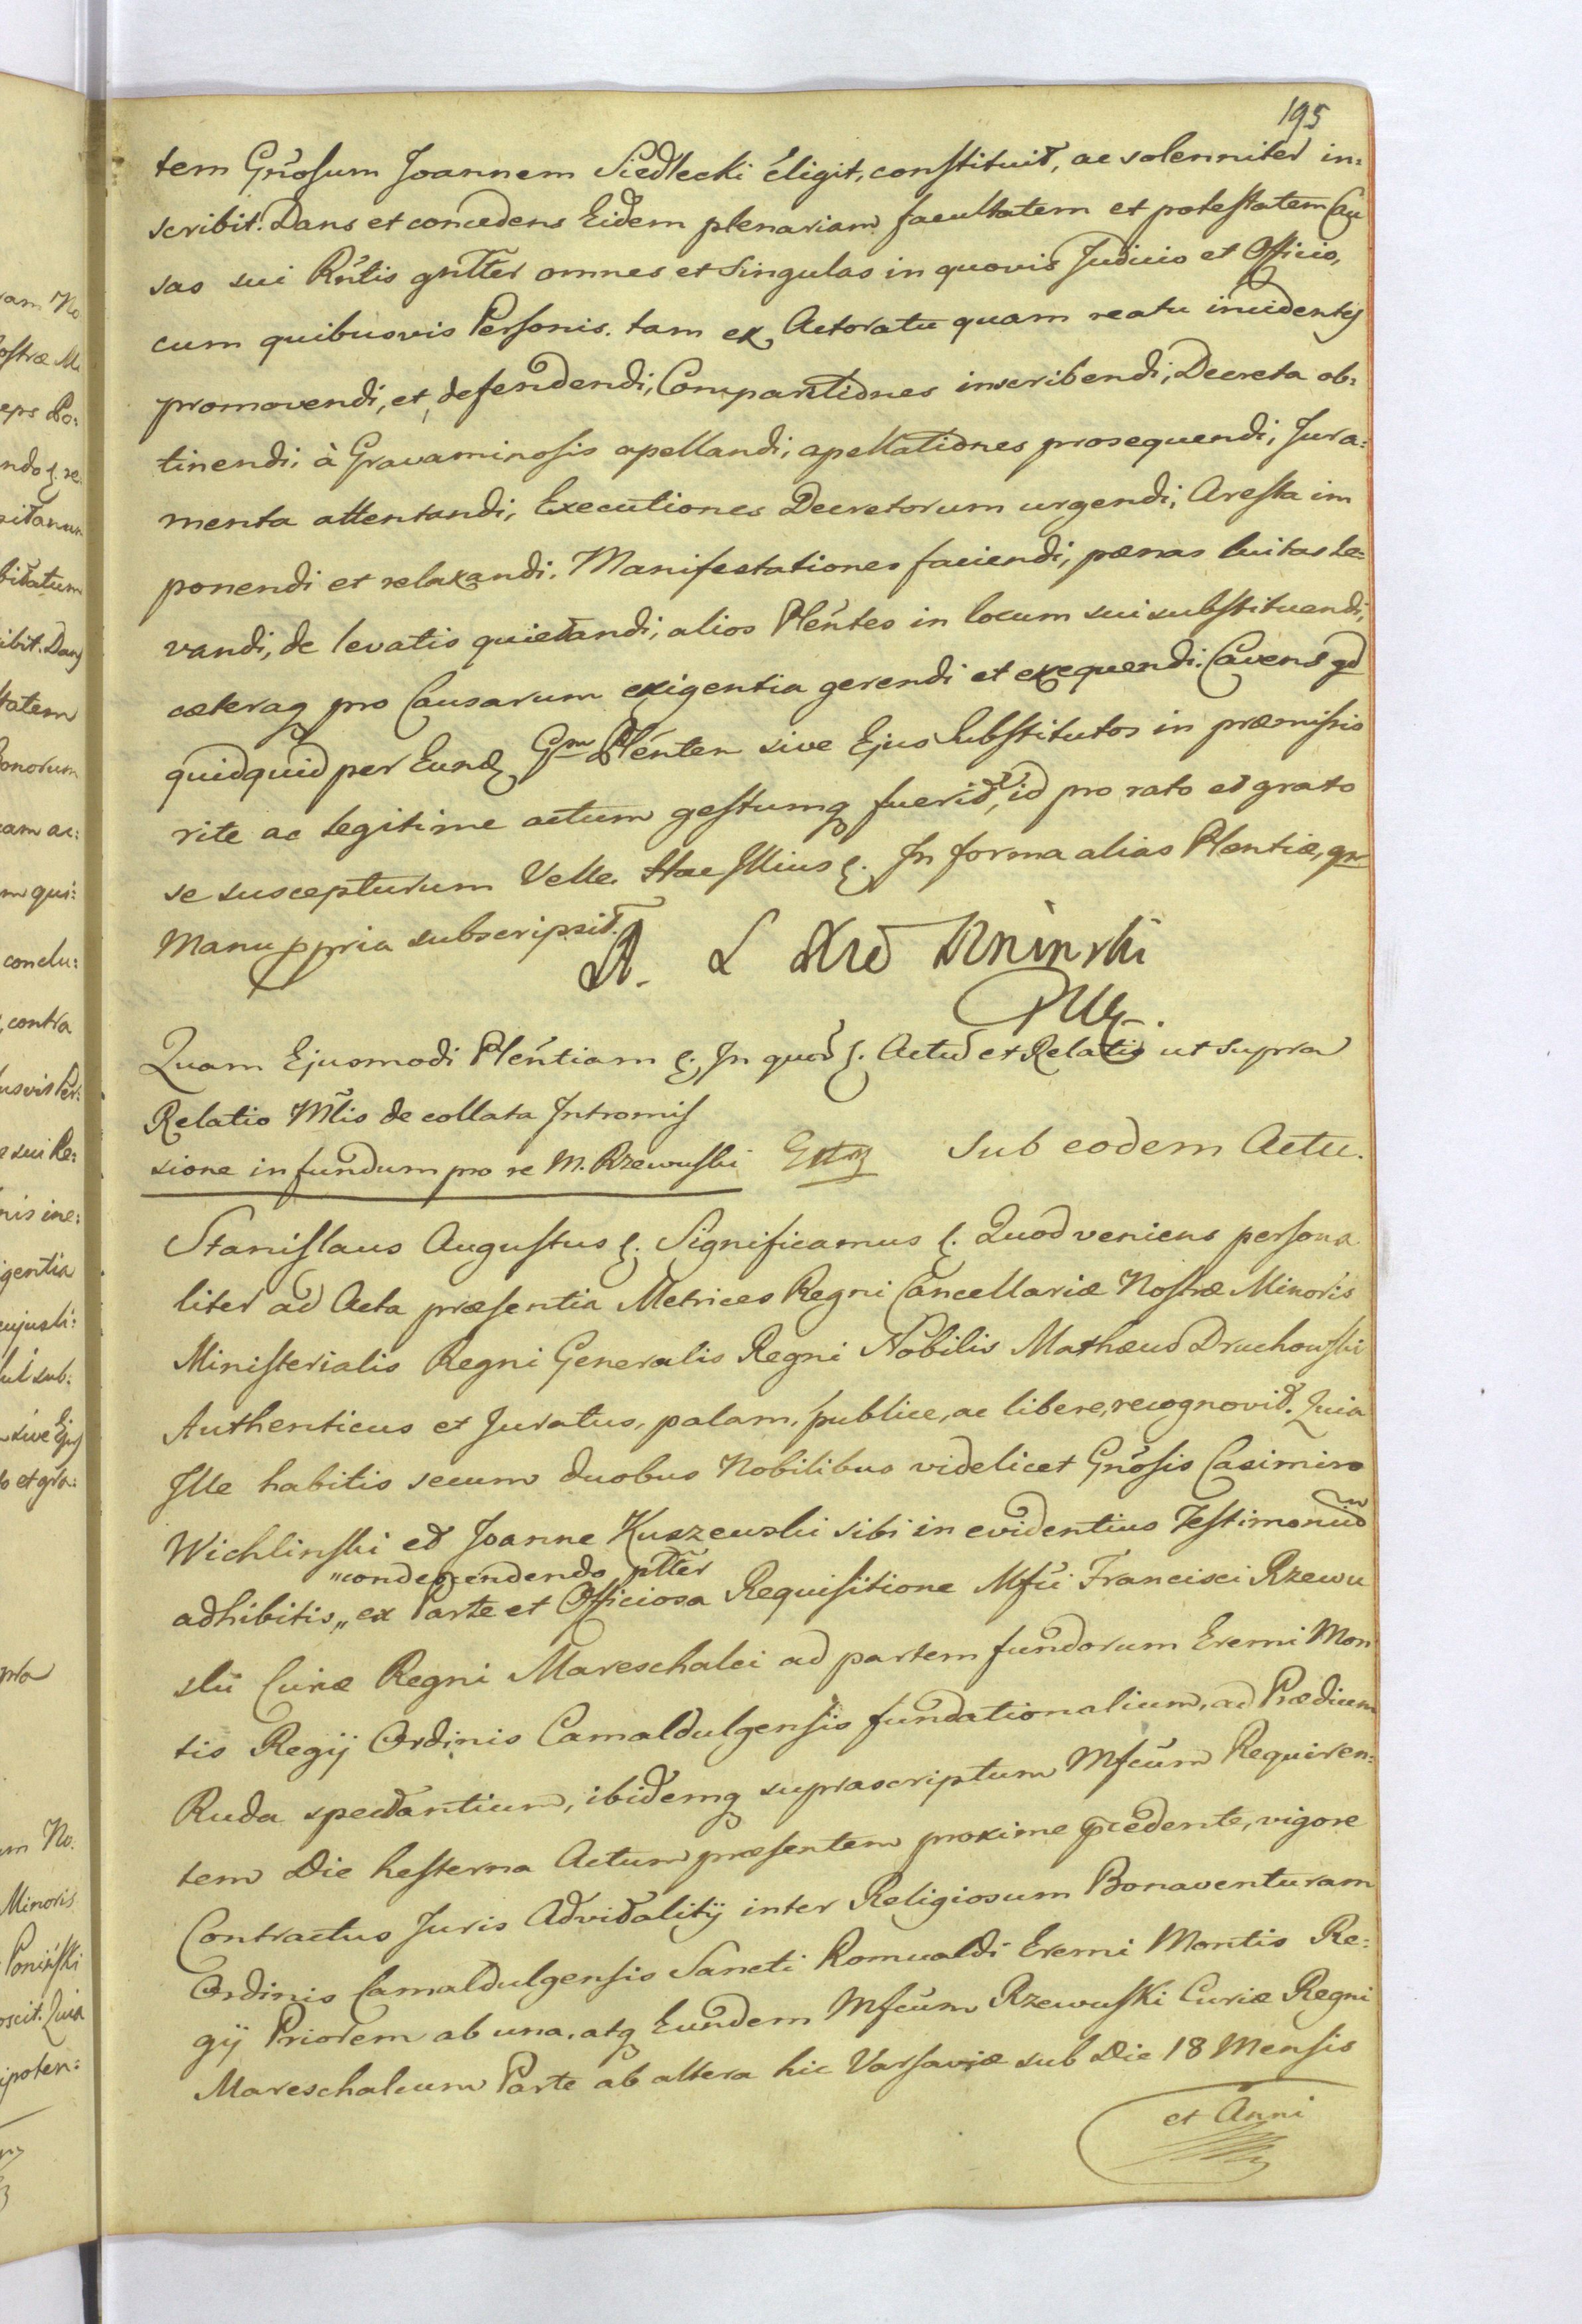 195
tem Gnosum Joannem Siedlecki eligit, constituit, ac solenniter in:
scribit. Dans et concedens Eidem plenariam facultatem et potestatem Cau
sas sui Rntis gnlter omnes et singulas in quovis Judicio et Officio,
cum quibusvis Personis. tam ex Actoratu quam reatu incidentes
promovendi, et defendendi, Comparitiones inscribendi, Decreta ob:
tinendi, à Gravaminosis apellandi, apellationes prosequendi, Jura:
menta attentandi, Executiones Decretorum urgendi, Aresta im
ponendi et relaxandi. Manifestationes faciendi, pænas luitas le:
vandi, de levatis quietandi, alios Plentes in locum sui substituendi,
cæteraq pro Causarum exigentia gerendi et exequendi. Cavens qd
quidquid per Eund Gm Plenten sive Ejus Substitutos in præmissis
rite ac legitime actum gestumq fuerit, id pro rato et grato
se suscepturum Velle. Stae Illius &. In forma alias Plentiæ, qr
Manu ppria subscripsit.
A. L Xże Poninski
PWK.
Quam Ejusmodi Plentiam &. In quor &. Actu et Relatio ut supra
Relatio Mlis de collata Intromis
sione in fundum pro re M. Rzewuski Extr Sub eodem Actu.
Stanislaus Augustus &. Significamus &. Quod veniens persona
liter ad Acta præsentia Metrices Regni Cancellariæ Nostræ Minoris
Ministerialis Regni Generalis Regni Nobilis Mathæus Druchowski
Authenticus et Juratus, palam, publice, ac libere, recognovit. Quia
Ille habitis secum duobus Nobilibus videlicet Gnosis Casimiro
Wichlinski et Joanne Kuszewski sibi in evidentius Testimoniu
„condescendendo ptter
adhibitis,„ ex Parte et Officiosa Requisitione Mfci Francisci Rzewu
ski Curiæ Regni Mareschalci ad partem fundorum Eremi Mon
tis Regij Ordinis Camaldulgensis fundationalium, ad Prædium
Ruda spectantium, ibidemq suprascriptum Mfcum Requiren:
tem Die hesterna Actum præsentem proxime præcedente, vigore
Contractus Juris Advitalitij inter Religiosum Bonaventuram
Ordinis Camaldulgensis Sancti Romualdi Eremi Montis Re:
gij Priorem ab una, atq Eundem Mfcum Rzewuski Curiæ Regni
Mareschalcum Parte ab altera hic Varsaviæ sub Die 18 Mensis
et Anni